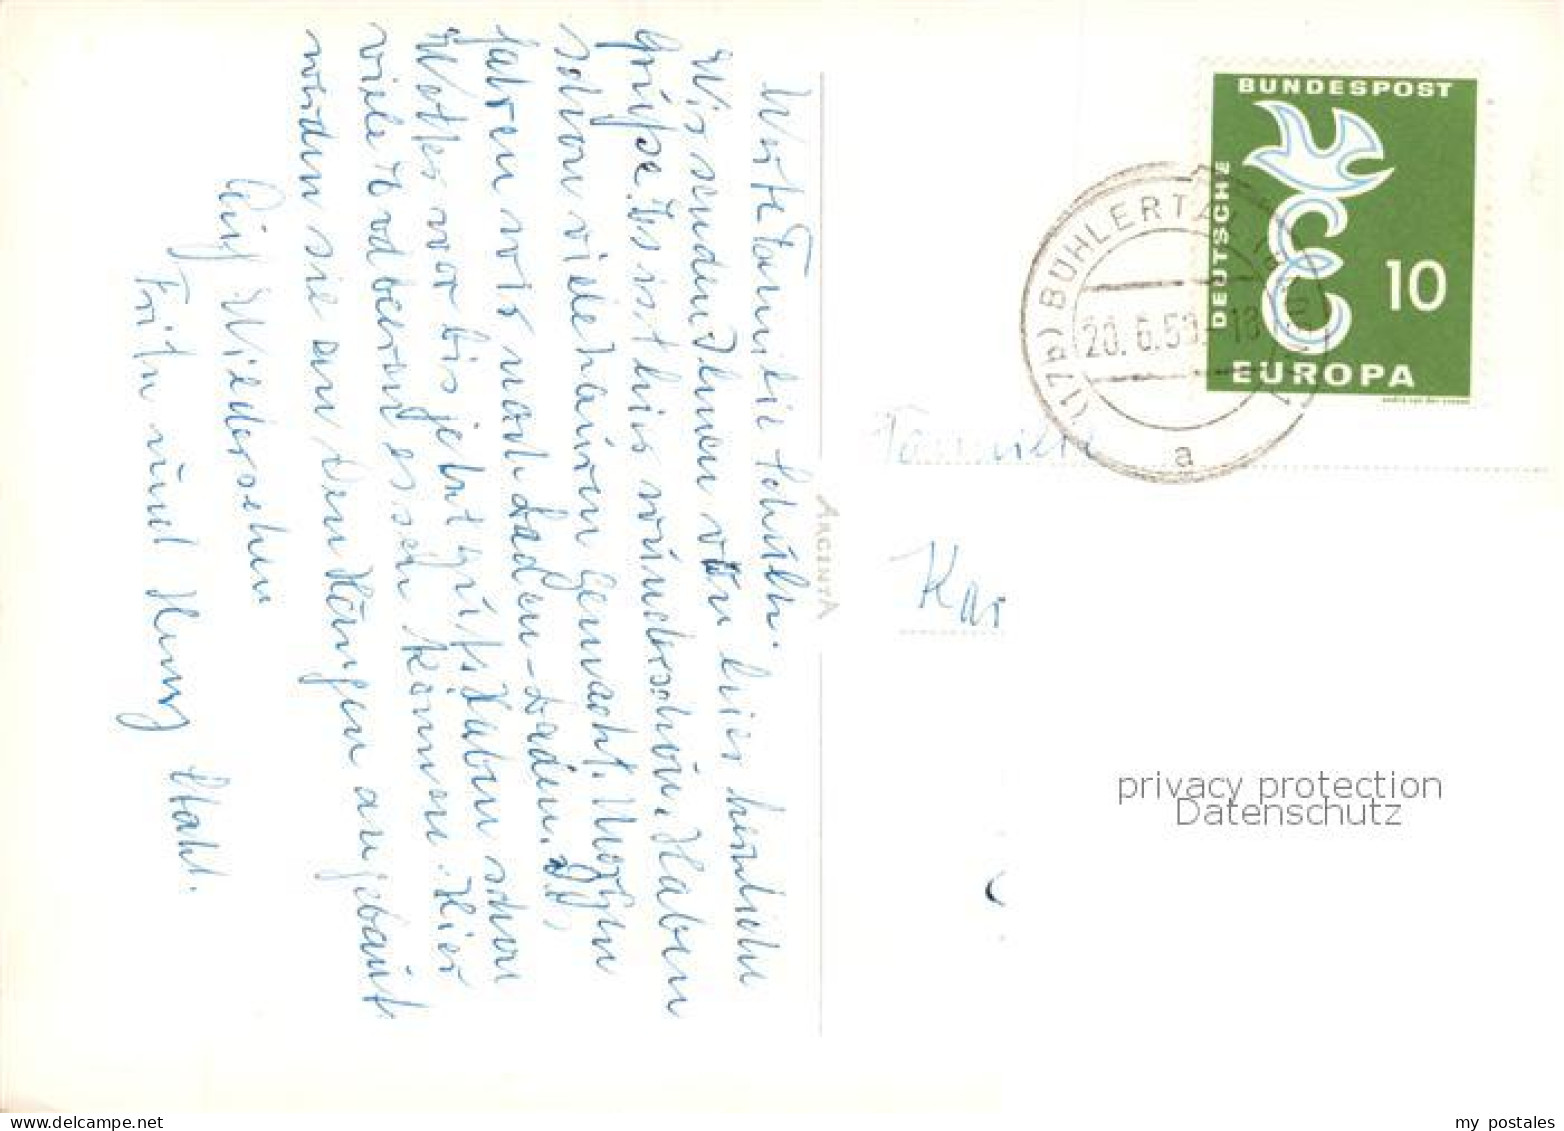 Werte Familie Schüli.
Wir senden Ihnen von hier herzliche
Grüße. Es ist hier wunderschön. Haben
schon viele Touren Gemacht. Morgen
fahren wir nach Baden-Baden. Das
Wetter war bis jetzt gut. Haben schon
viele Erdbeeren essen können. Hier
werden sie an den Hängen angebaut
Auf Wiedersehen
Fritz und Henny Stahl.
ARGENTA
BUNDESPOST
DEUTSCHE
10
EUROPA
(17b) BÜHLERTAL
20. 6. 59.-18
a
Familie
Kar
privacy protection
Datenschutz
my postales